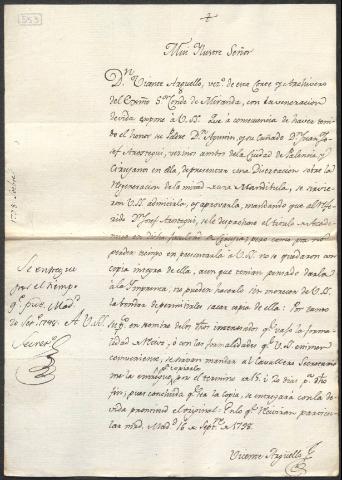 553
+
Muy Ilustre Señor
Dn. Vicente Arguello, vezo. de esta Corte y Archivero
del Exmo. Sor. Conde de Miranda, con la veneracion
devida expone à V.S. Que à consecuencia de haver teni-
do el honor su Padre Dn. Agustin, y su Cuñado Dn. Juan Jo-
sef Arostegui, vecinos ambos de la Ciudad de Palencia, y
Cirujanos en ella, de presentar una Disertacion sobre la
Regeneracion de la mitad de una Mandibula, se sirvie-
ron V.S. admitirla, y aprovarla, mandando que al
Dn. Josef Arostegui, se le despachase el titulo de Acade-
mico en dicha facultad de Cirugia; pero como por no
perder tiempo en presentarla à V.S. no se quedaron con
copia integra de ella, aunque tenian pensado darla
à la Imprenta, no pueden hacerlo sin merecer de V.S.
la bondad de permitirles sacar copia de ella: Por tanto
A V.S. suppca. en nombre de los dhos. interesados, que vajo la forma-
lidad de Recivo, ò con las formalidades que V.S. estimen
combeniente, se sirvan mandar al Cavallero Secretario
me la entregue para copiarla por el termino de 15. ò 20 dias pa. dho.
fin; pues concluida que sea la copia, se entregara con la de-
vida prontitud el original: En lo que Recivirán particu-
lar mrd. Madd. 16 de Septre. de 1798.
Vicente Arguello
Se entregue
por el tiempo
que pide. Madd.
Secreto.